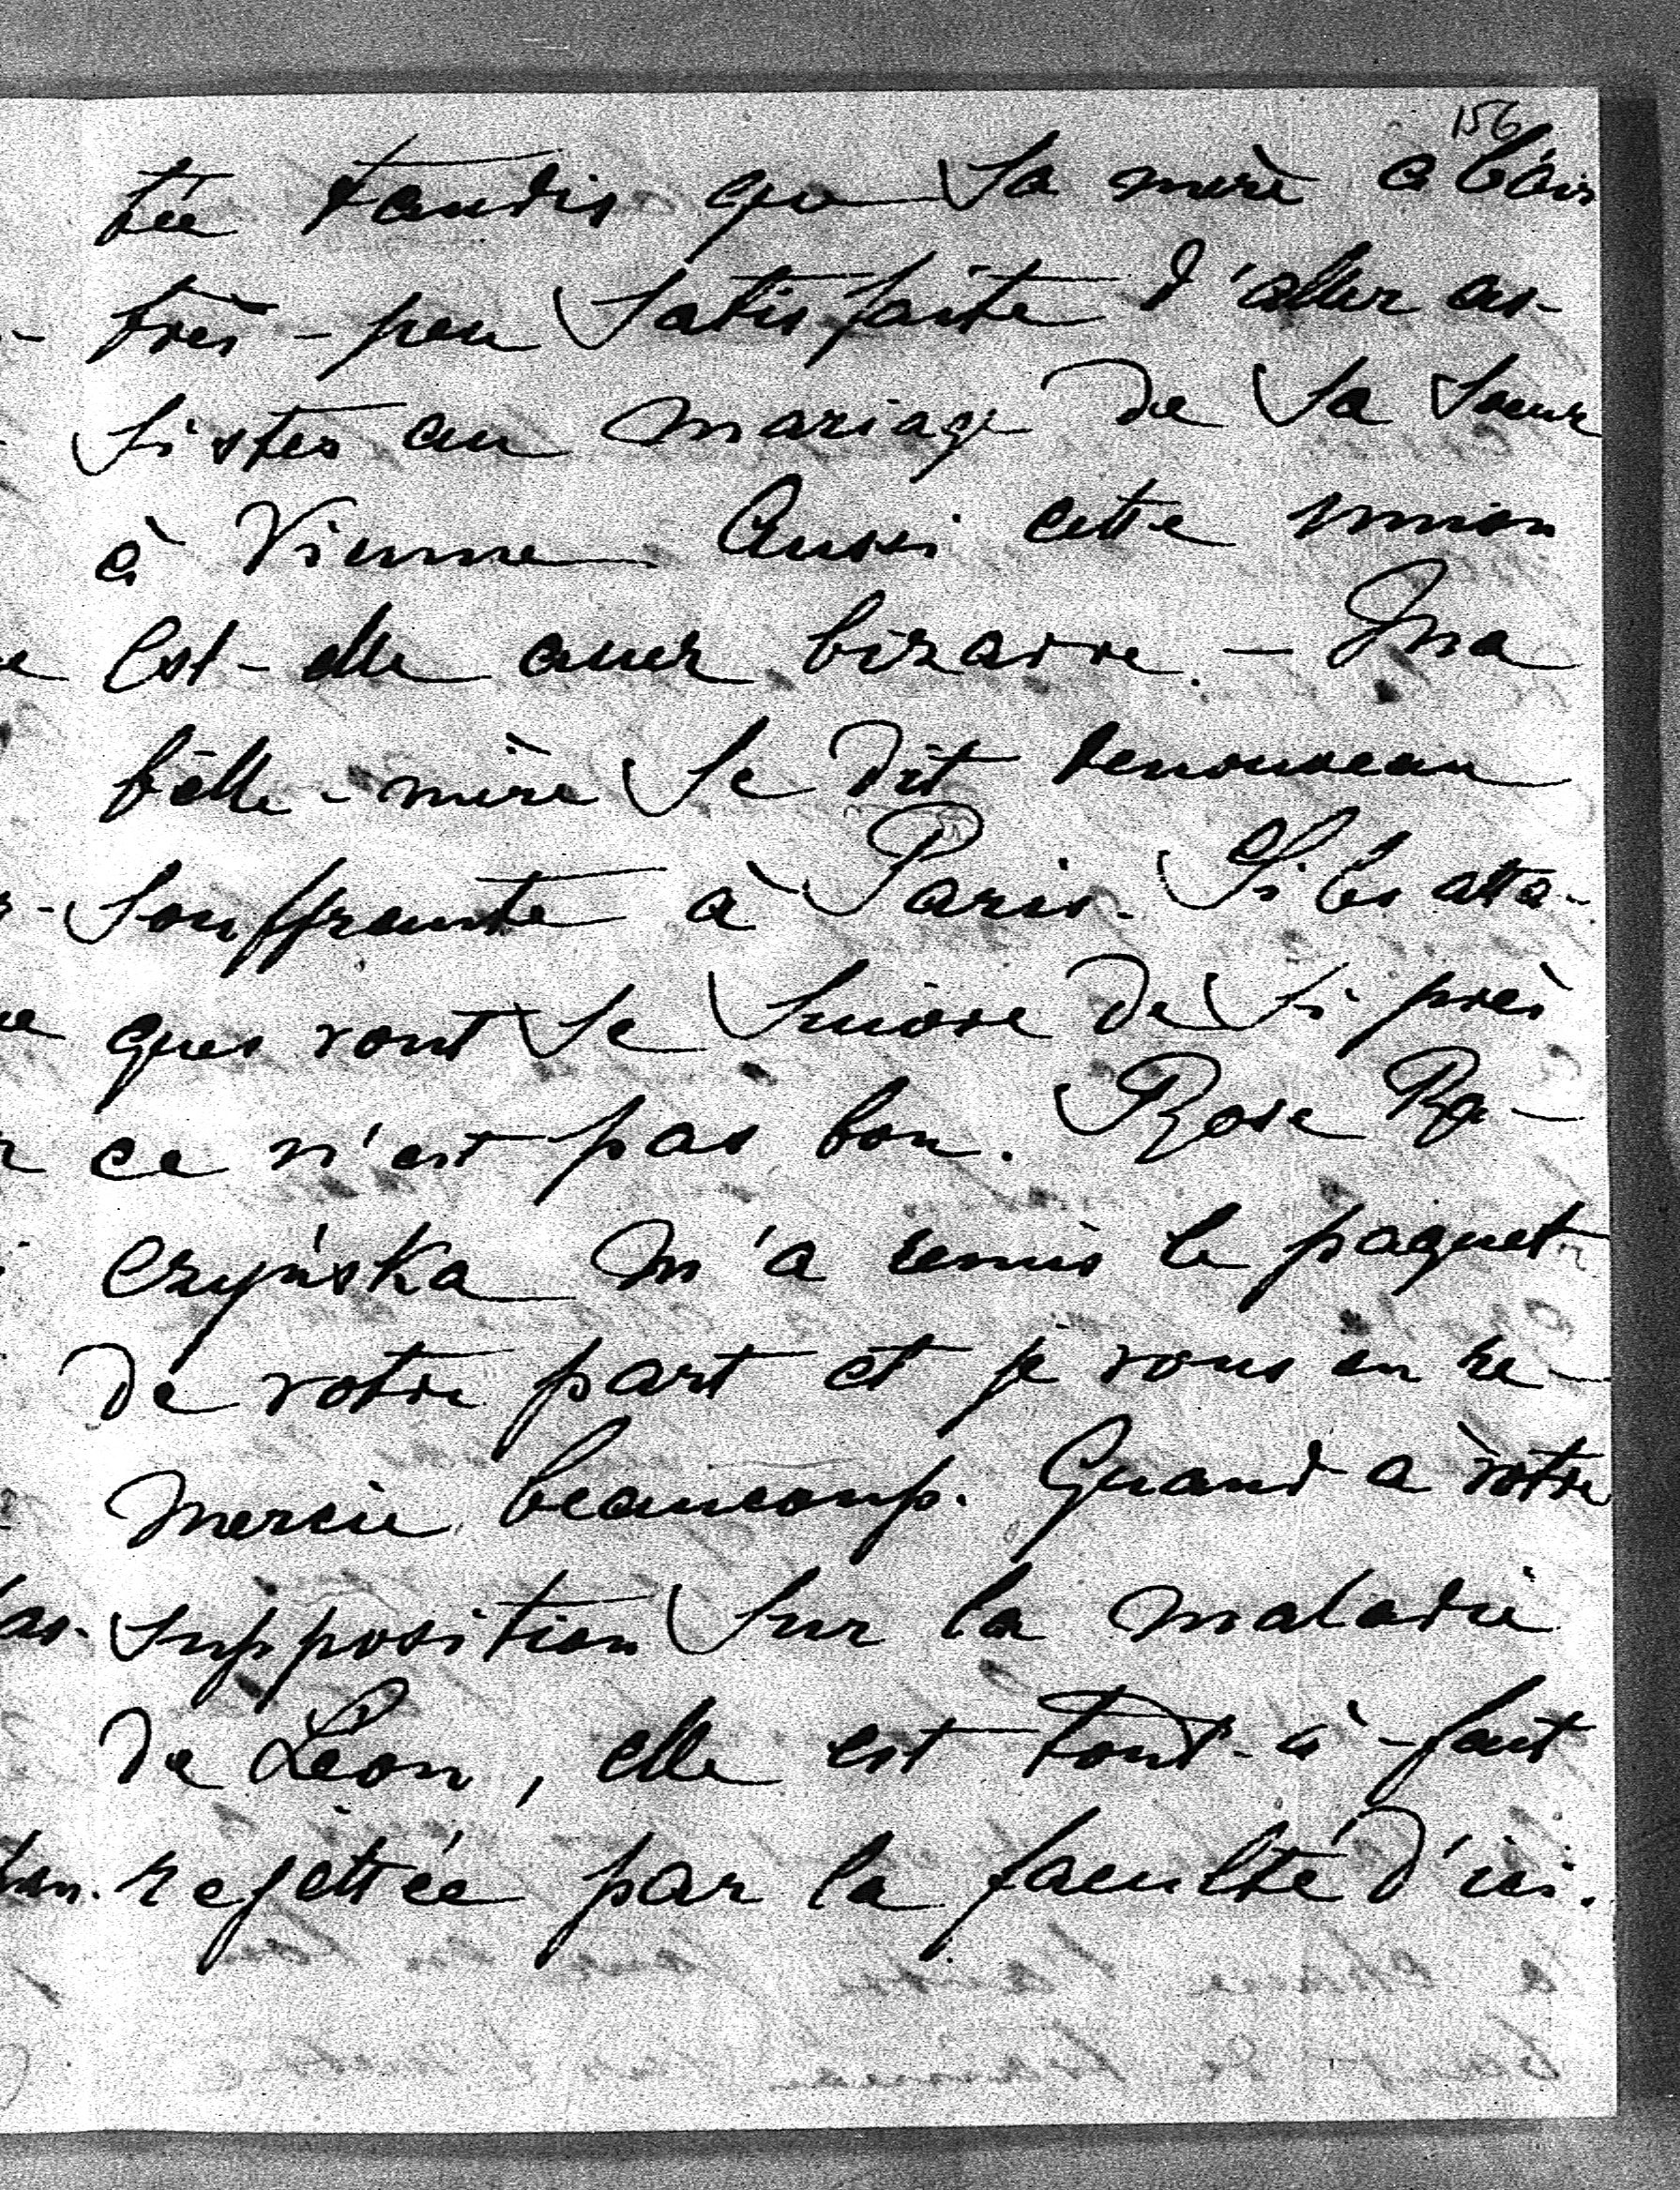 156
tée tandis que sa mère a l'air
très-peu satisfaite d'aller as-
sister au mariage de sa soeur
à Vienne. Aussi cette union
est-elle assez bizarre. — Ma
belle-mère se dit denouveau
souffrante à Paris. Si les atta-
ques vont se suivre de si près
ce n'est pas bon. Rose Ra-
czyńska m'a remis le paquet
de votre part et je vous en re-
mercie beaucoup. Quand à votre
supposition sur la maladie
de Léon, elle est tout-à-fait
rejettée par la faculté d'ici.